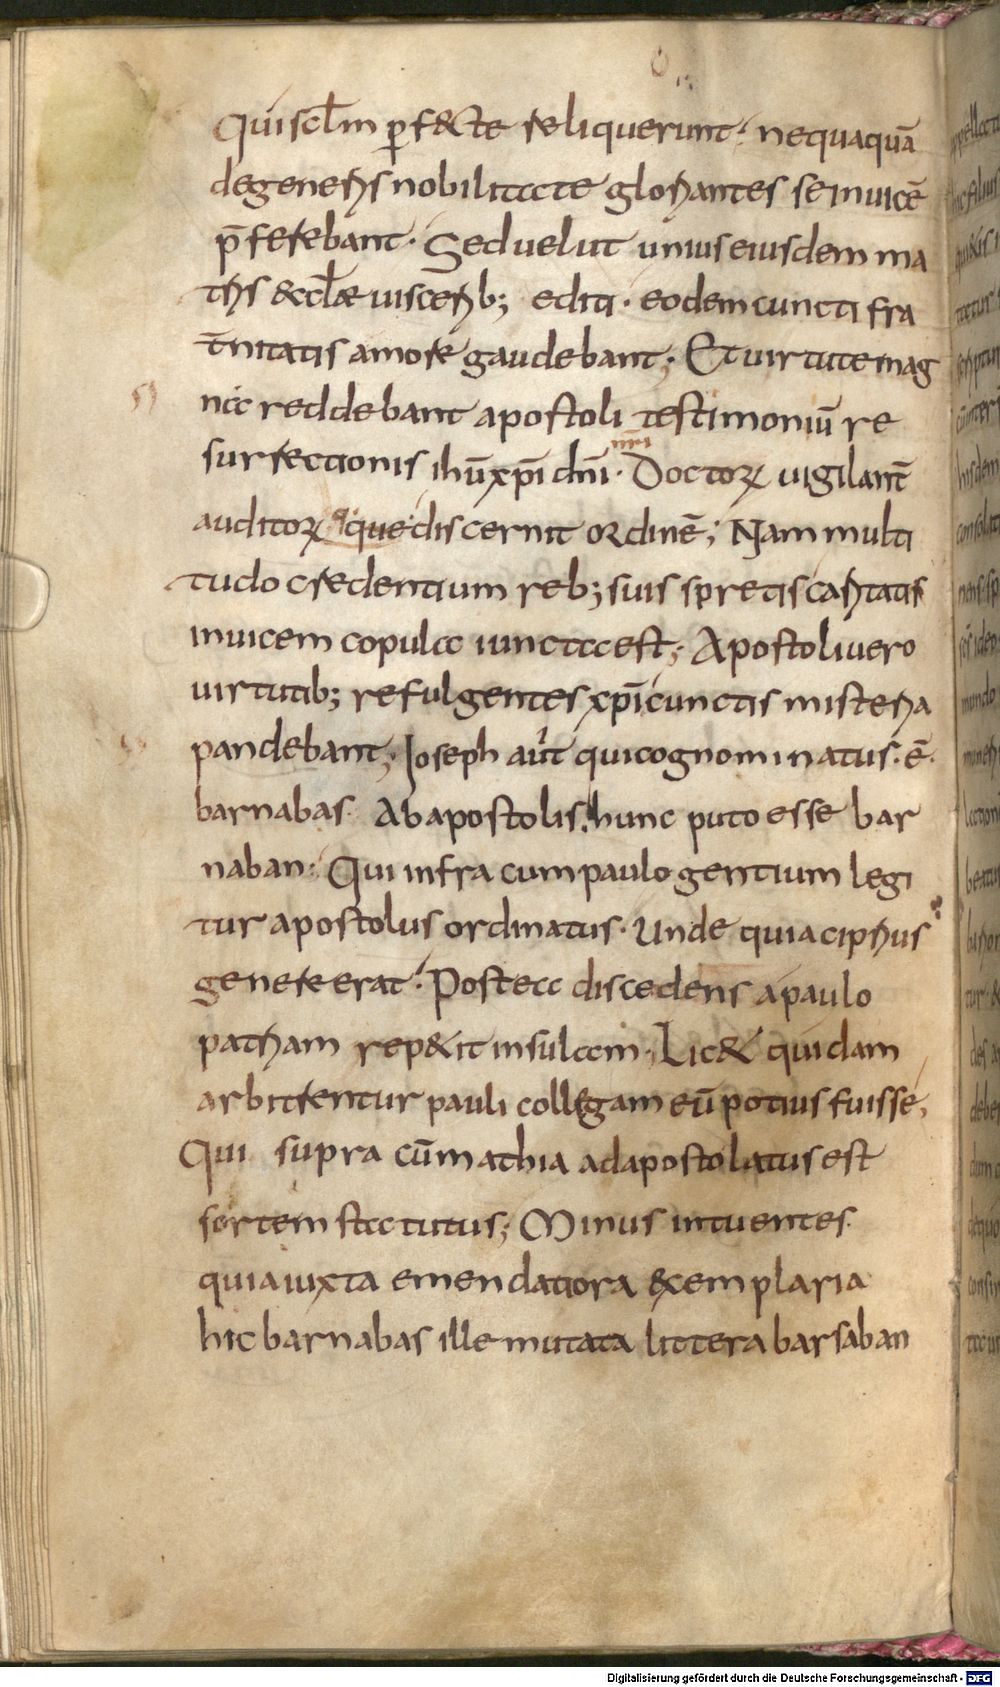 Qui scl̅m ꝑf&cte reliquerunt· nequaquā
de generis nobilitate gloriantes se inuicē
p̄ferebant· Sed uelut unius eiusdem ma
tris &ccl̅æ uiscerib; editi· eodem cuncti fra
t̄nitatis amore gaudebant; Et uirtute mag
na reddebant apostoli testimoniū re
surrectionis ihū xp̄i dn̄i nr̄i· Doctoꝝ vigilant̄
auditoꝝq que discernit ordinē; Nam multi
tudo credentium reb; suis spretis caritatis
inuicem copula iuncta est; Apostoli uero
uirtutib; refulgentes xp̄i cunctis misteria
pandebant; Ioseph aut̄ qui cognominatus·ē·
barnabas· Ab apostolis· hunc puto esse bar
naban· Qui infra cum paulo gentium legi
tur apostolus ordinatus· Unde quia ciprius
genere erat· Postea discedens a paulo
patriam rep&it insulam· Lic& quidam
arbitrentur pauli collegam eū potius fuisse,
Qui supra cū mathia ad apostolatus est
sortem statutus; Minus intuentes·
quia iuxta emendatiora &xemplaria
hic barnabas ille mutata littera barsaban
Digitalisierung gefördert durch die Deutsche Forschungsgemeinschaft - DFG